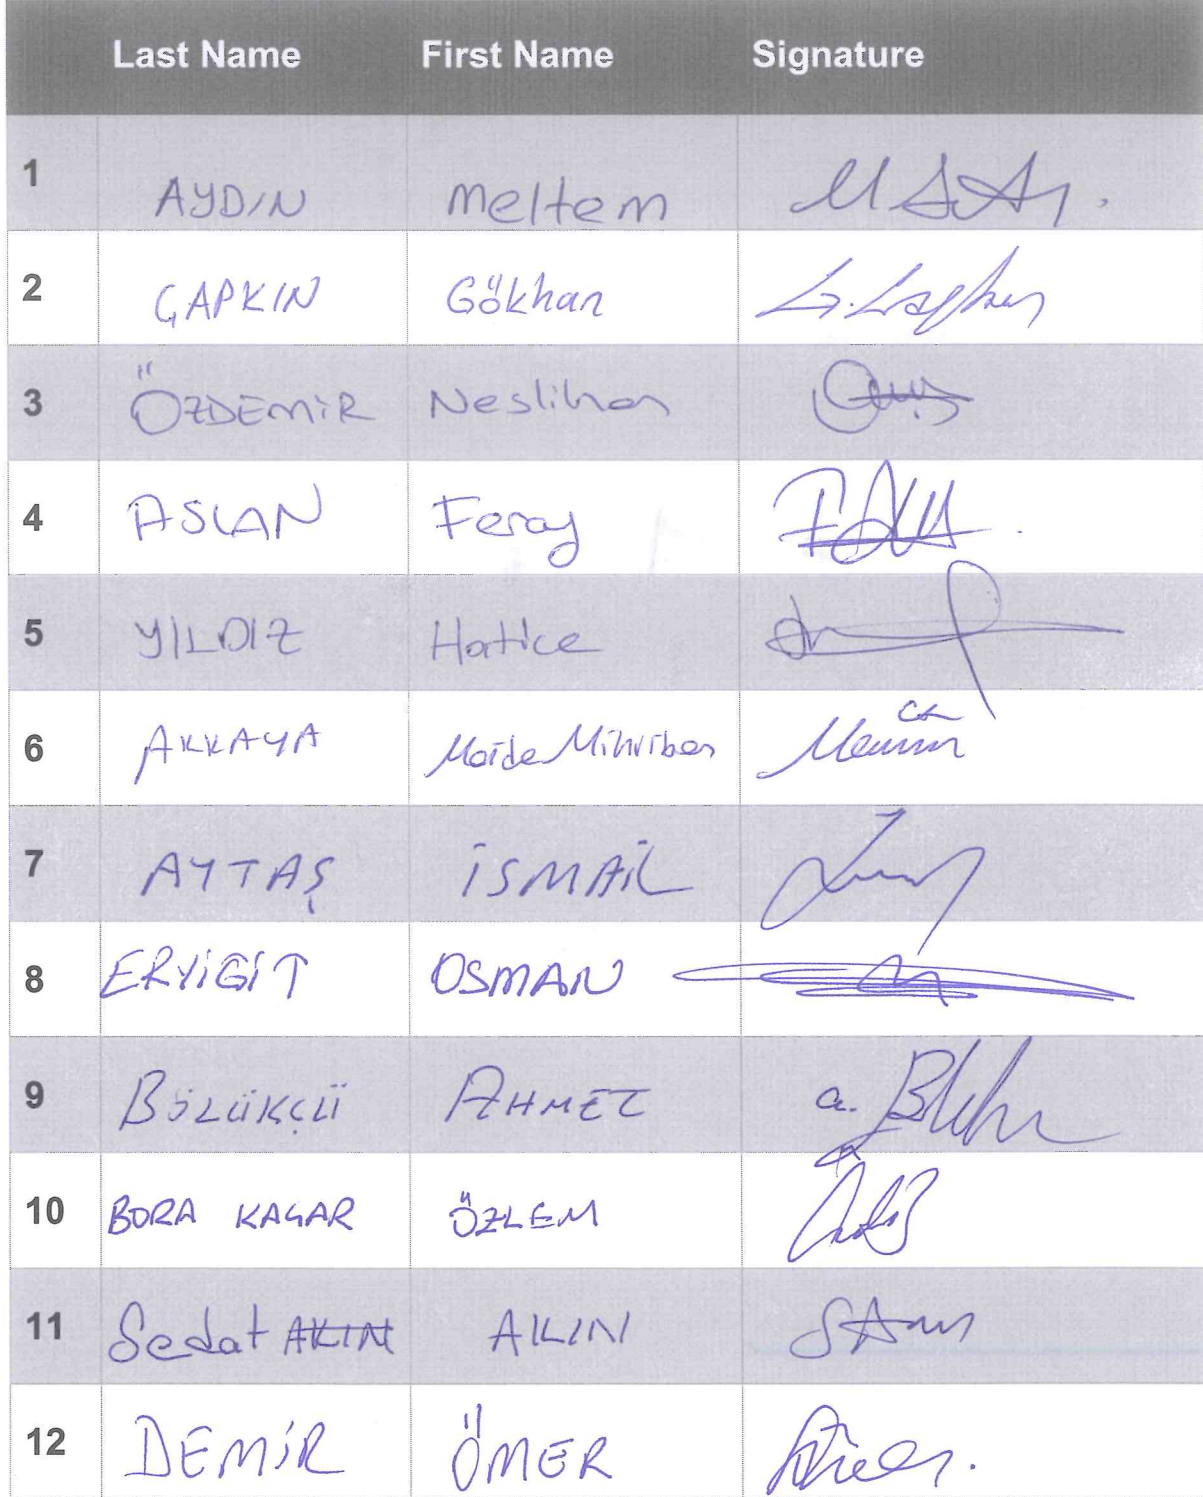 Last Name First Name Signature
1 AYDIN Meltem
2 ÇAPKIN Gökhan
3 ÖZDEMİR Neslihan
4 ASLAN Feray
5 YILDIZ Hatice
6 AKKAYA Maide Mihriban
7 AYTAŞ İSMAİL
8 ERYİĞİT OSMAN
9 BÖLÜKÇÜ AHMET
10 BORA KAÇAR ÖZLEM
11 Sedat AKIN AKIN
12 DEMİR ÖMER